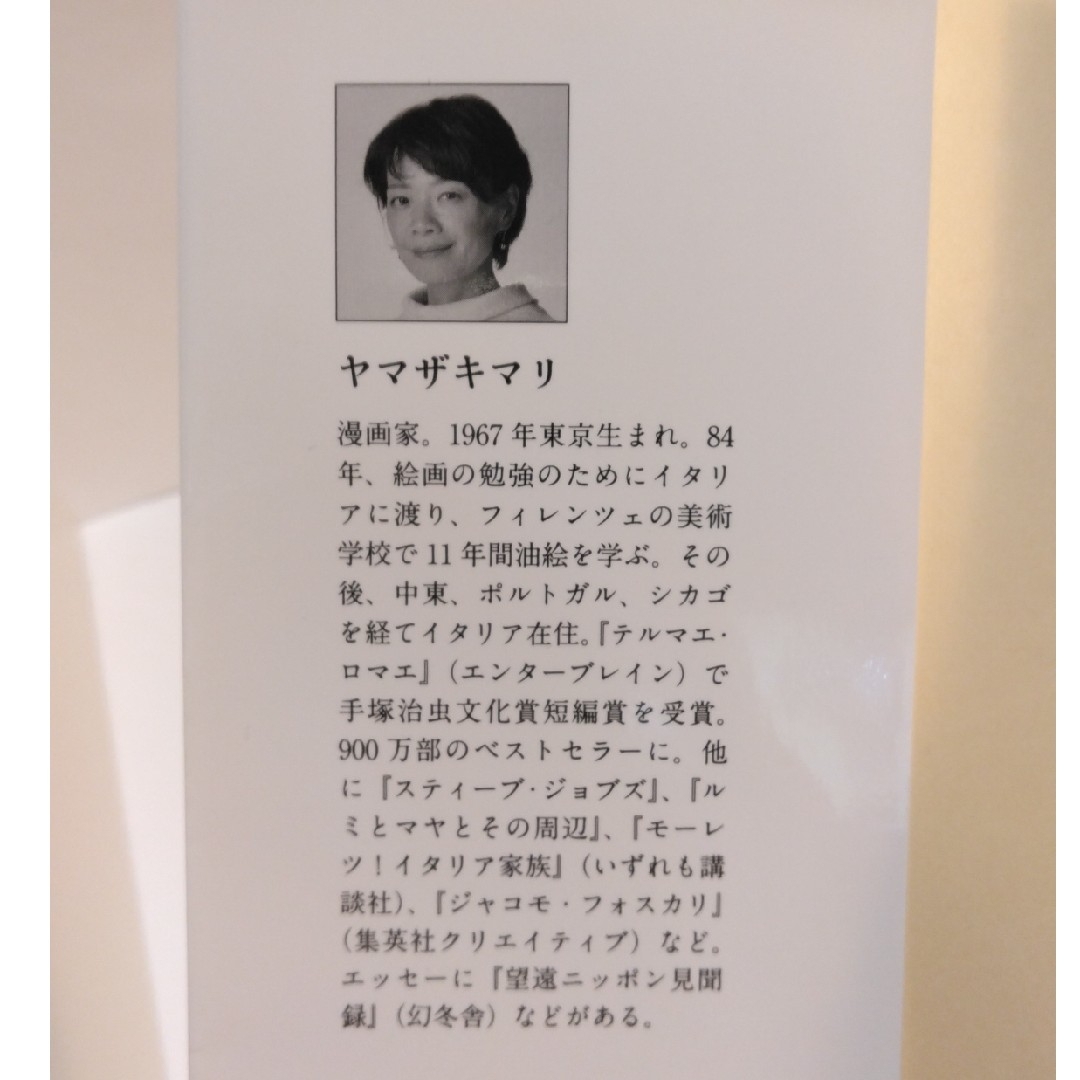 ヤマザキマリ
漫画家。1967年東京生まれ。84
年、絵画の勉強のためにイタリ
アに渡り、フィレンツェの美術
学校で11年間油絵を学ぶ。その
後、中東、ポルトガル、シカゴ
を経てイタリア在住。『テルマエ・
ロマエ』（エンターブレイン）で
手塚治虫文化賞短編賞を受賞。
900万部のベストセラーに。他
に『スティーブ・ジョブズ』、『ル
ミとマヤとその周辺』、『モーレ
ツ！イタリア家族』（いずれも講
談社）、『ジャコモ・フォスカリ』
（集英社クリエイティブ）など。
エッセーに『望遠ニッポン見聞
録』（幻冬舎）などがある。